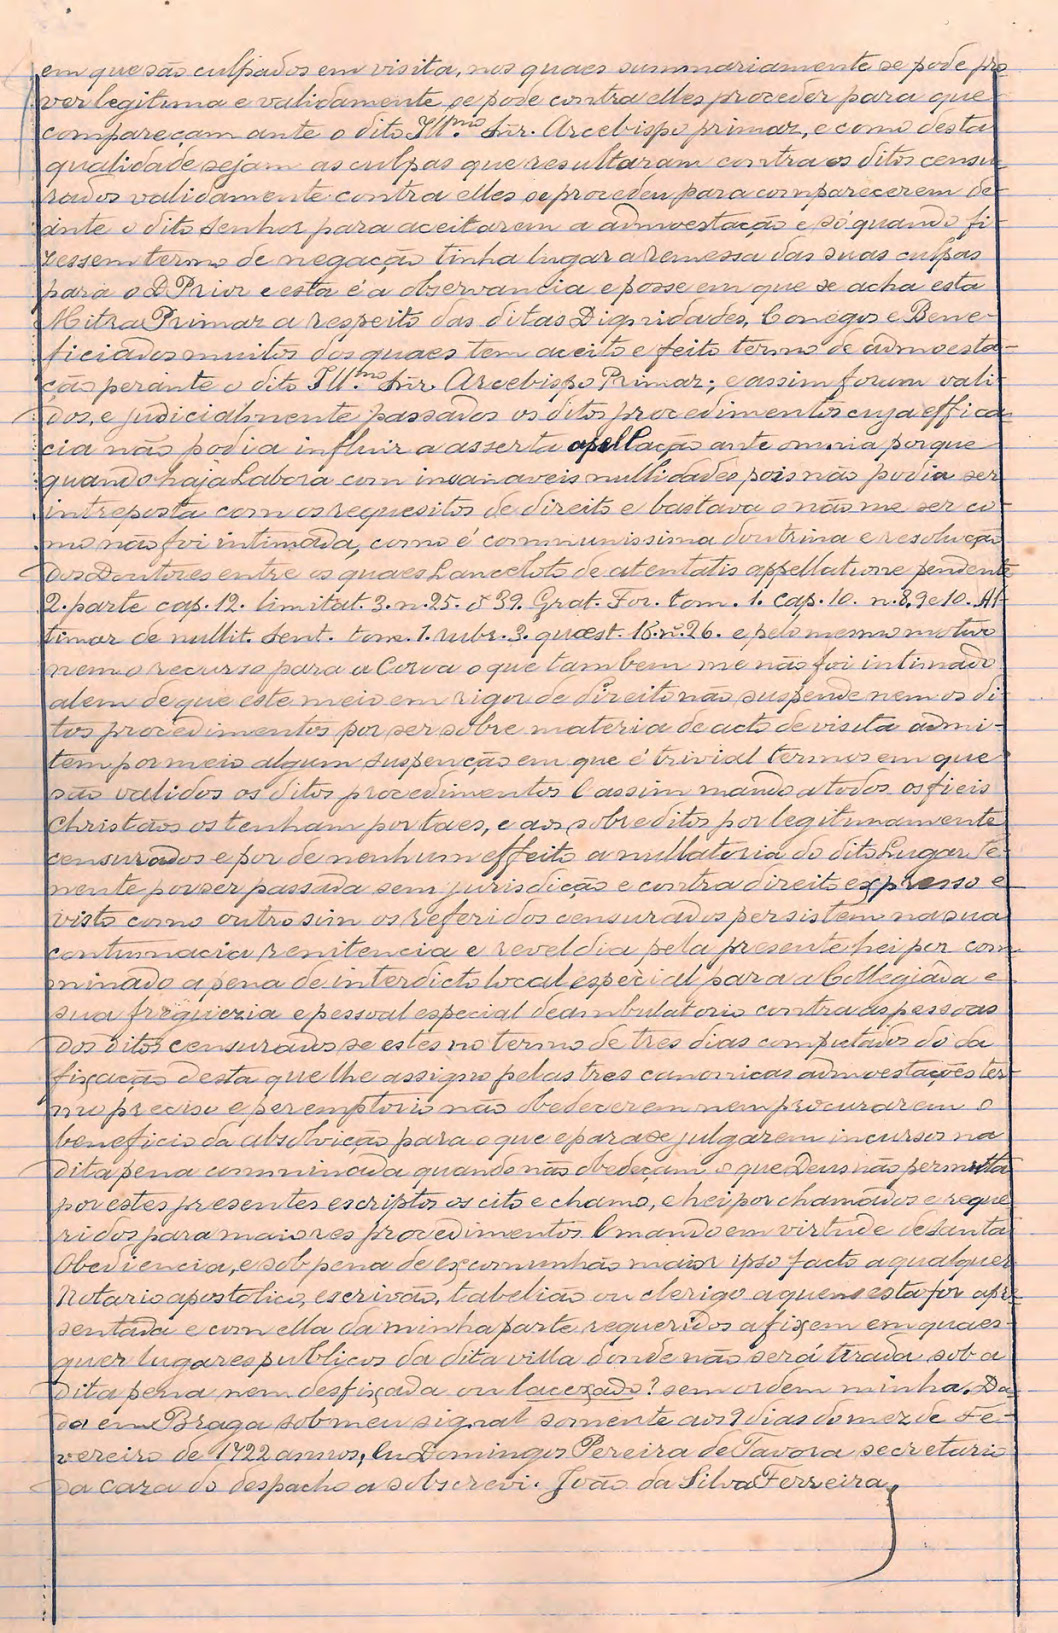 em que são culpados em visita, nos quaes summariamente se pode pro
ver legitima e validamente se pode contra elles proceder para que
compareçam ante o dito Ill.mo Snr. Arcebispo primaz, e como desta
qualidade sejam as culpas que resultaram contra os ditos censu
rados validamente contra elles se procedeu para comparecerem de
ante o dito Senhor para aceitarem a admoestação e só quando fi
zessem termo de negação tinha lugar a remessa das suas culpas
para o D. Prior e esta é a observancia e posse em que se acha esta
Mitra Primaz a respeito das ditas Dignidades, Conegos e Bene-
ficiados muitos dos quaes tem aceito e feito termo de admoesta-
ção perante o dito Ill.mo Snr. Arcebispo Primaz; e assim forum vali
dos, e judicialmente passados os ditos procedimentos cuja effica
cia não podia influir a asserta apellação ante omnia porque
quando haja Labora com insanaveis nullidades pois não podia ser
intreposta com os requesitos de direito e bastava o não me ser co
mo não foi intimada, como é communissima doutrina e resolução
dos Doutores entre os quaes Lanceloto de atentatis appellatione pendente
2. parte cap. 12. limitat. 3. n. 25. e 39. Grat. For. tom. 1. cap. 10. n. 8, 9 e 10. Al
timar de nullit. Sent. tom. 1. rubr. 3. quæst. 18. nº. 26. e pelo mesmo motivo
nem o recurso para a Coroa o que tambem me não foi intimado
alem de que este meio em rigor de direito não suspende nem os di
tos procedimentos por ser sobre materia de acto de visita admi-
tem por meio algum suspenção em que é trivial termos em que
são validos os ditos procedimentos E assim mando a todos os fieis
Christãos os tenham por taes, e aos sobreditos por legitimamente
censurados e por de nenhum effeito a nullatoria do dito Lugar te
nente por ser passada sem jurisdicção e contra direito expresso e
visto como outro sim os referidos censurados persistem na sua
contumacia renitencia e reveldia pela presente hei por com
minado a pena de interdicto local especial para a Collegiada e
sua freguezia e pessoal especial deambulatorio contra as pessoas
dos ditos censurados se estes no termo de tres dias computados do da
fixação desta que lhe assigno pelas tres canonicas admoestações ter
mo preciso e peremptorio não obedecerem nem procurarem o
beneficio da absolvição para o que e para se julgarem incursos na
dita pena comminada quando não obedeçam o que Deus não permitta
por estes presentes escriptos os cito e chamo, e hei por chamados e reque
ridos para maiores procedimentos E mando em virtude de Santa
Obediencia, e sob pena de excomunhão maior ipso facto a qualquer
Notario apostolico, escrivão, tabelião ou clerigo a quem esta for apre
sentada e com ella da minha parte requeridos a fixem em quaes-
quer lugares publicos da dita villa donde não será tirada sob a
dita pena nem desfixada ou lacexado? sem ordem minha. Da
da em Braga sob meu signal somente aos 9 dias do mez de Fe-
vereiro de 1722 annos, Eu Domingos Pereira de Tavora secretario
da caza do despacho a sobscrevi. João da Silva Ferreira